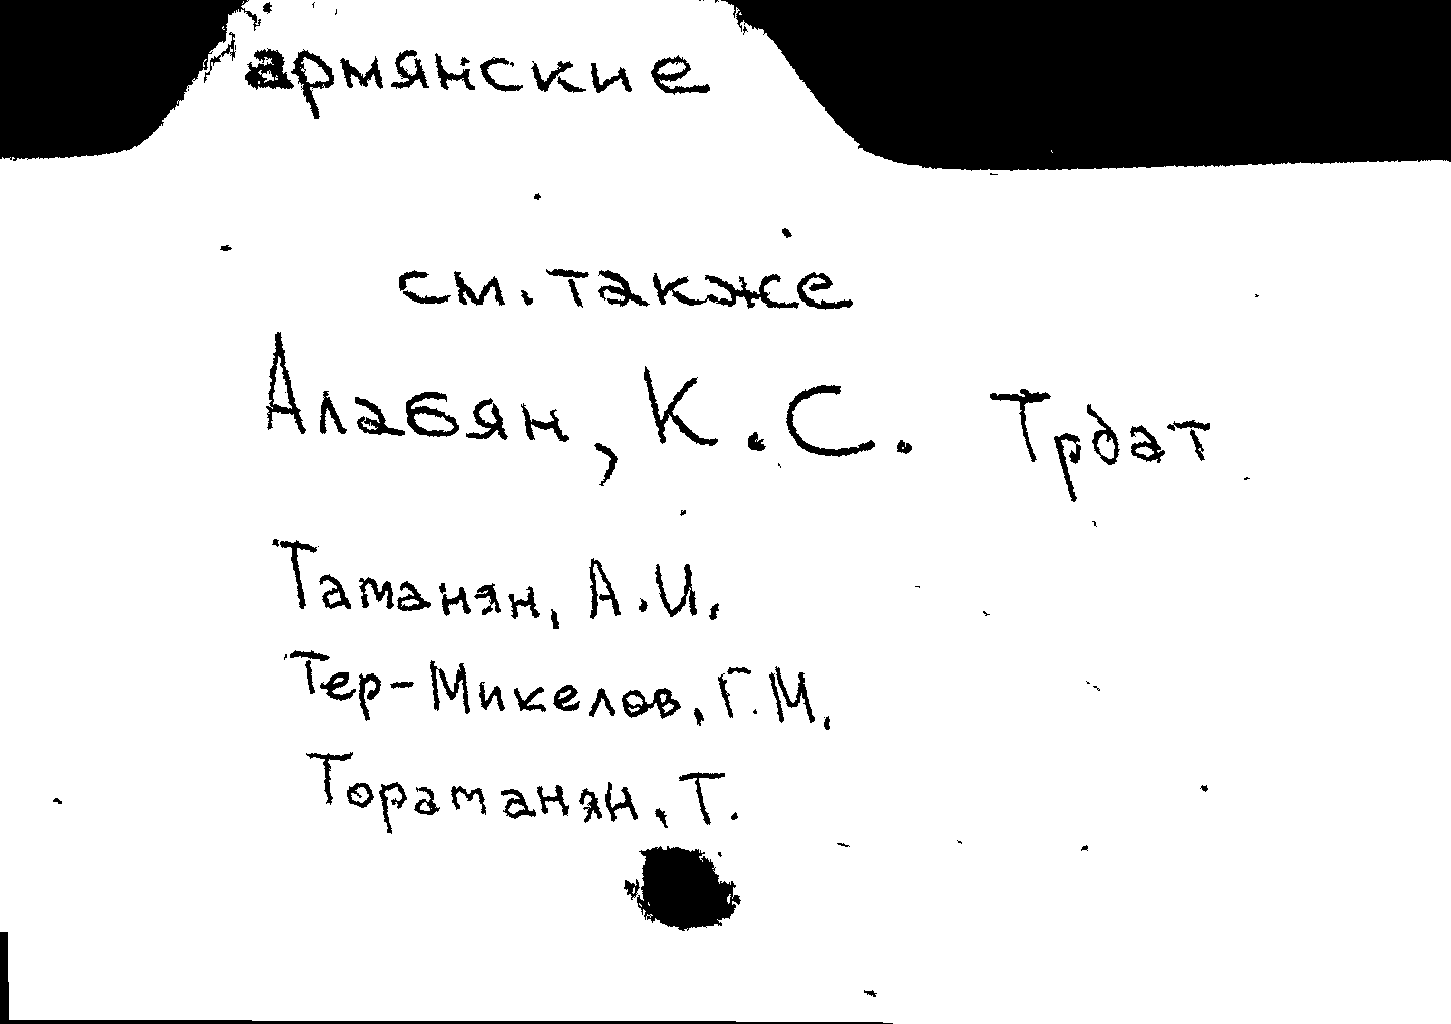 армянские
см. также
Алабян, К.С. Трдат
Таманян, А.И.
Тер-Микелов, Г.М.
Тораманян, Т.